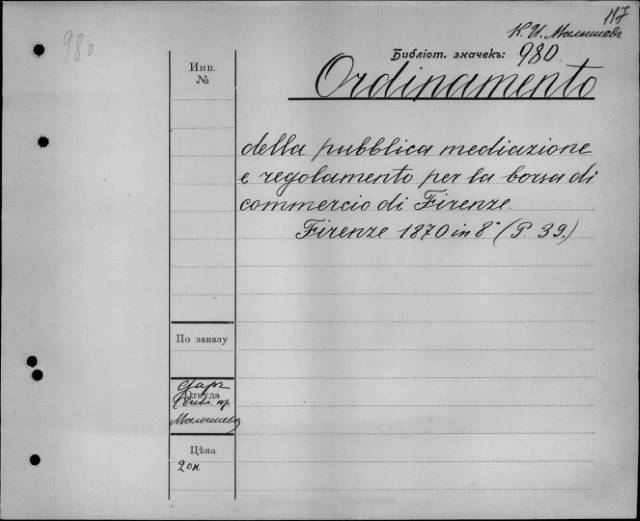 117
К. И. Малышевъ
980
Библіот. значекъ: 980.
Инв.
№
Ordinamento
della pubblica mediazione
e regolamento per la borsa di
commercio di Firenze.
Firenze 1870 in 8° (P. 39.)
По заказу
Даръ
Откуда
пр.
Малышева
Цѣна
20 к.